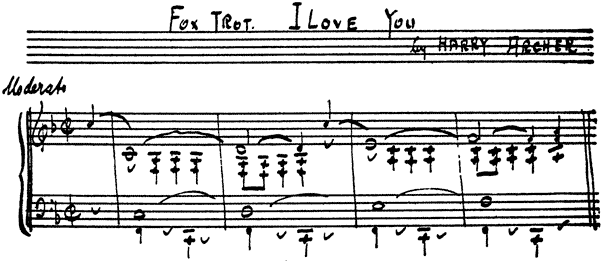 FOX TROT. I LOVE YOU
by HARRY ARCHER.
Moderato